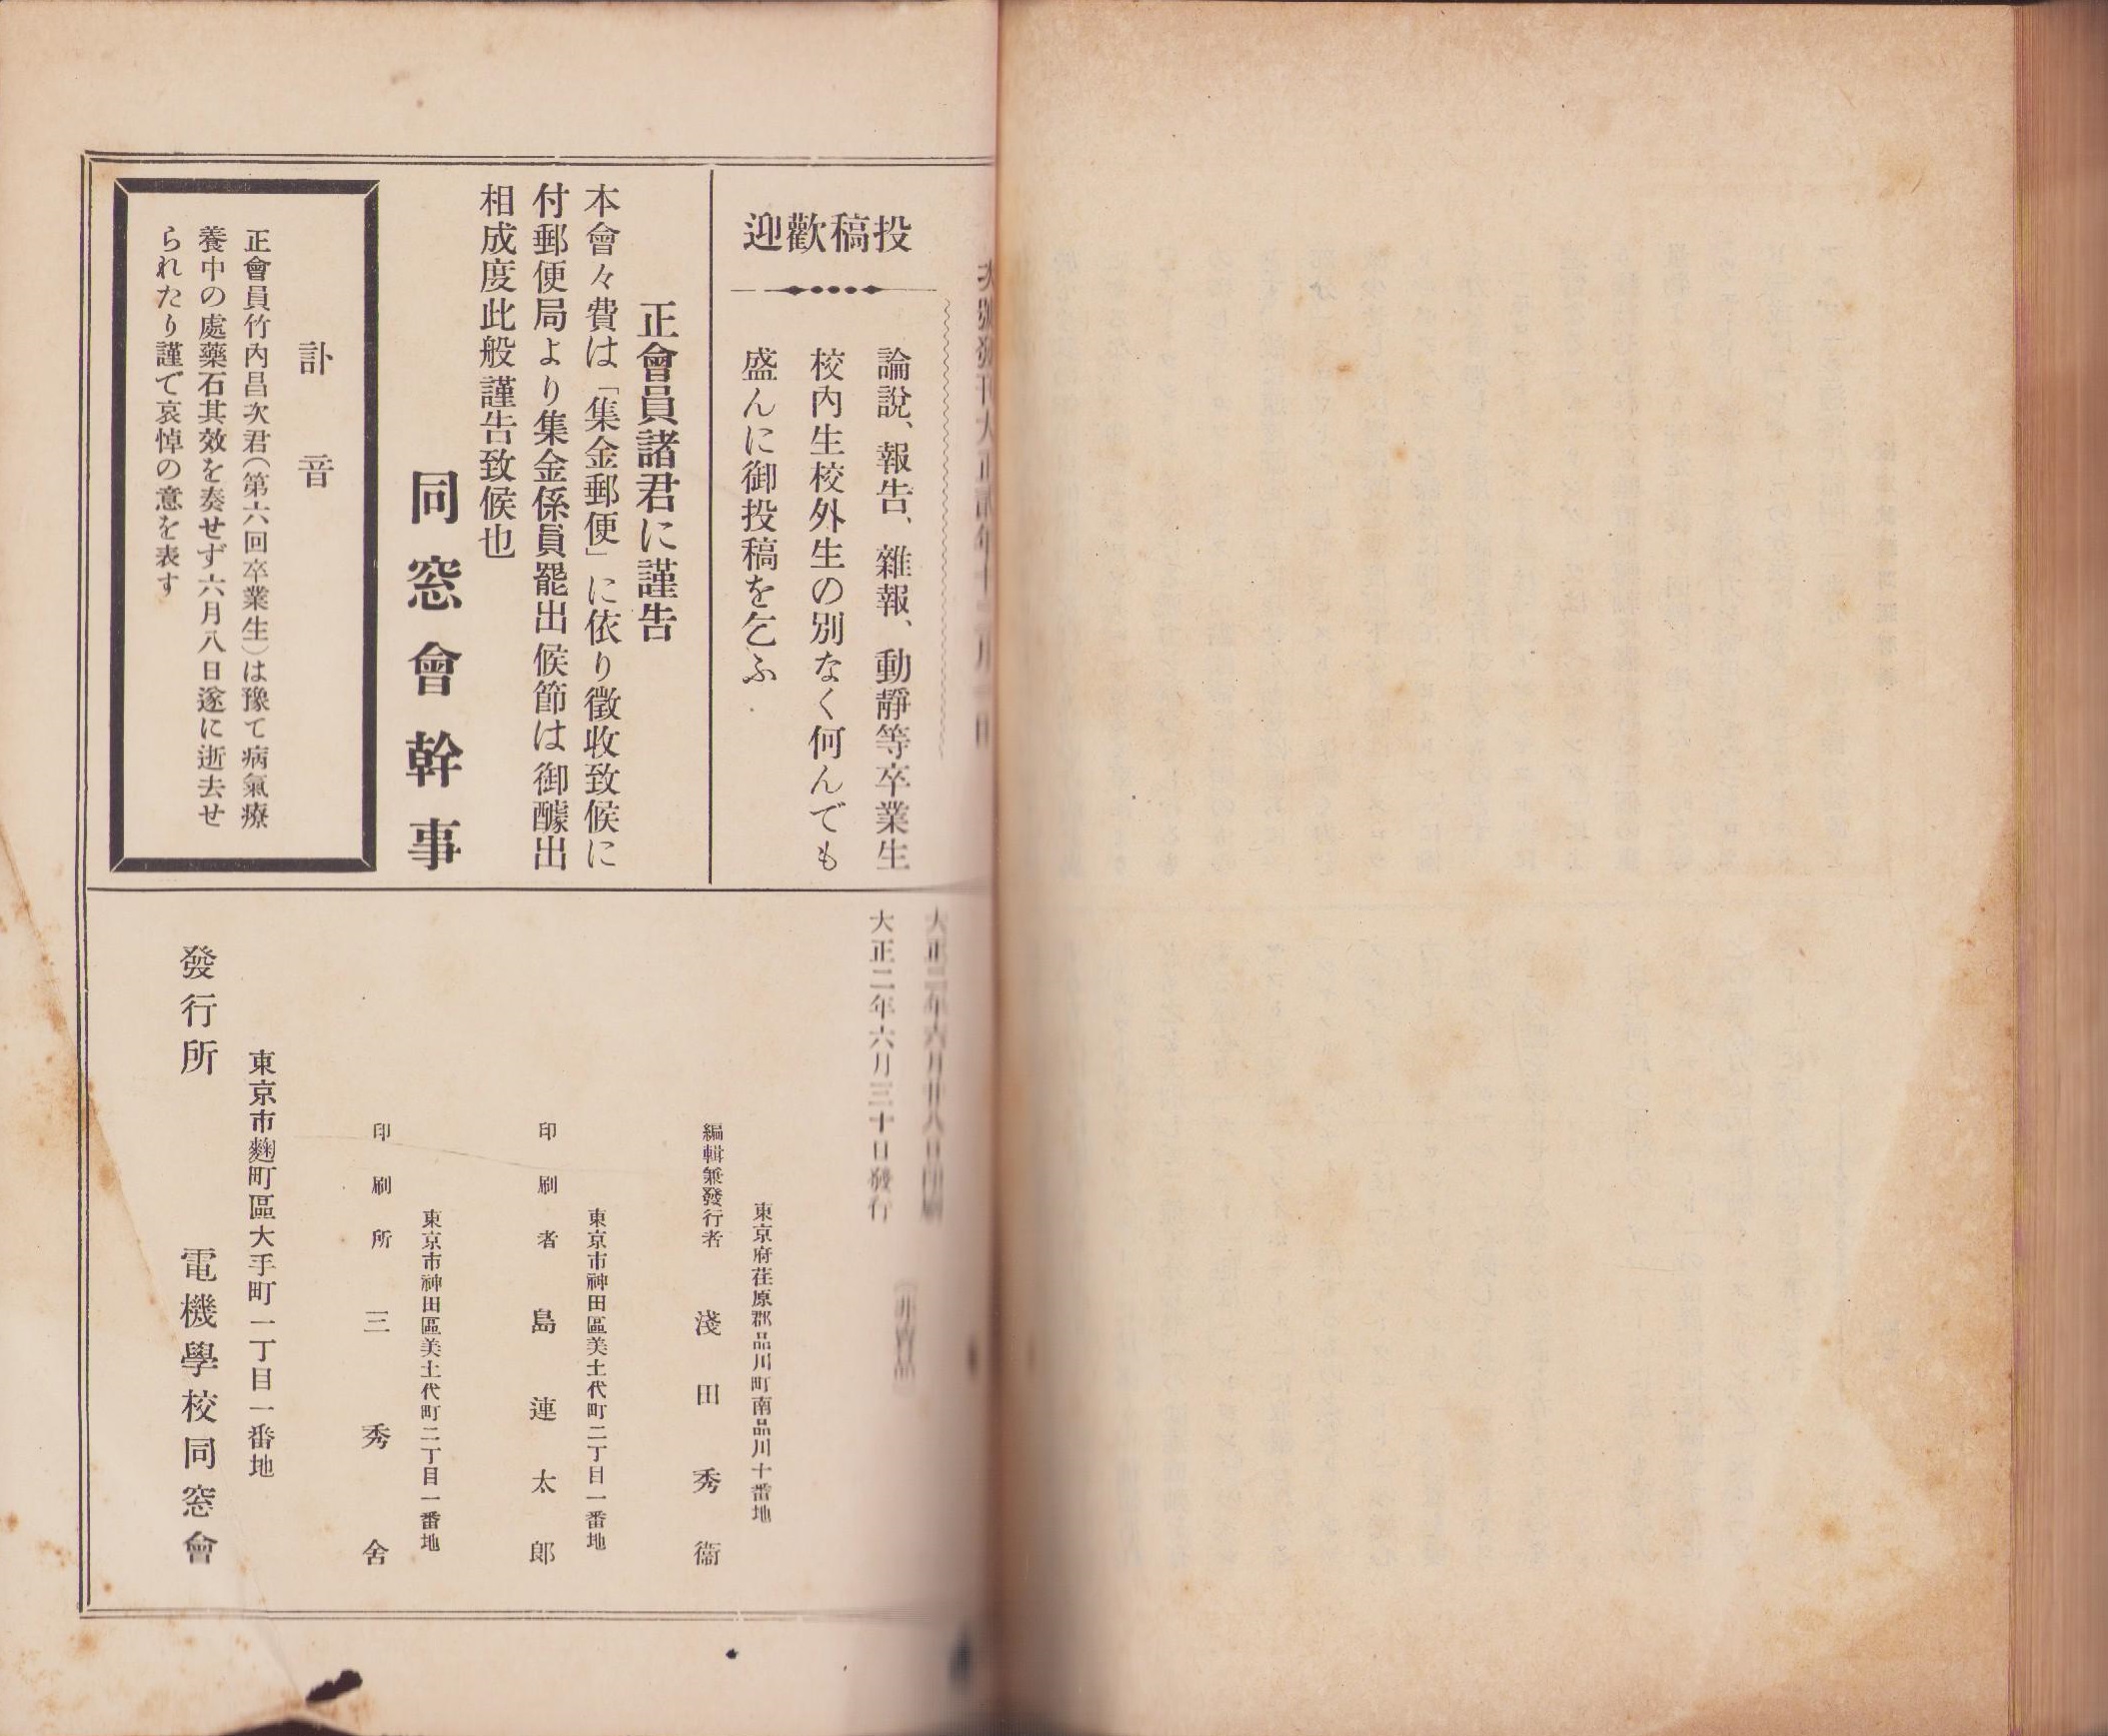 投稿歡迎
論說、報告、雜報、動靜等卒業生
校內生校外生の別なく何んでも
盛んに御投稿を乞ふ
正會員諸君に謹告
本會々費は「集金郵便」に依り徵收致候に
付郵便局より集金係員罷出候節は御醵出
相成度此般謹告致候也
同窓會幹事
訃音
正會員竹內昌次君(第六回卒業生)は豫て病氣療
養中の處藥石其效を奏せず六月八日遂に逝去せ
られたり謹て哀悼の意を表す
大正二年六月廿八日印刷
大正二年六月三十日發行
東京府荏原郡品川町南品川十番地
編輯兼發行者 淺田秀衞
東京市神田區美土代町二丁目一番地
印刷者 島連太郎
東京市神田區美土代町二丁目一番地
印刷所 三秀舍
東京市麴町區大手町一丁目一番地
發行所 電機學校同窓會